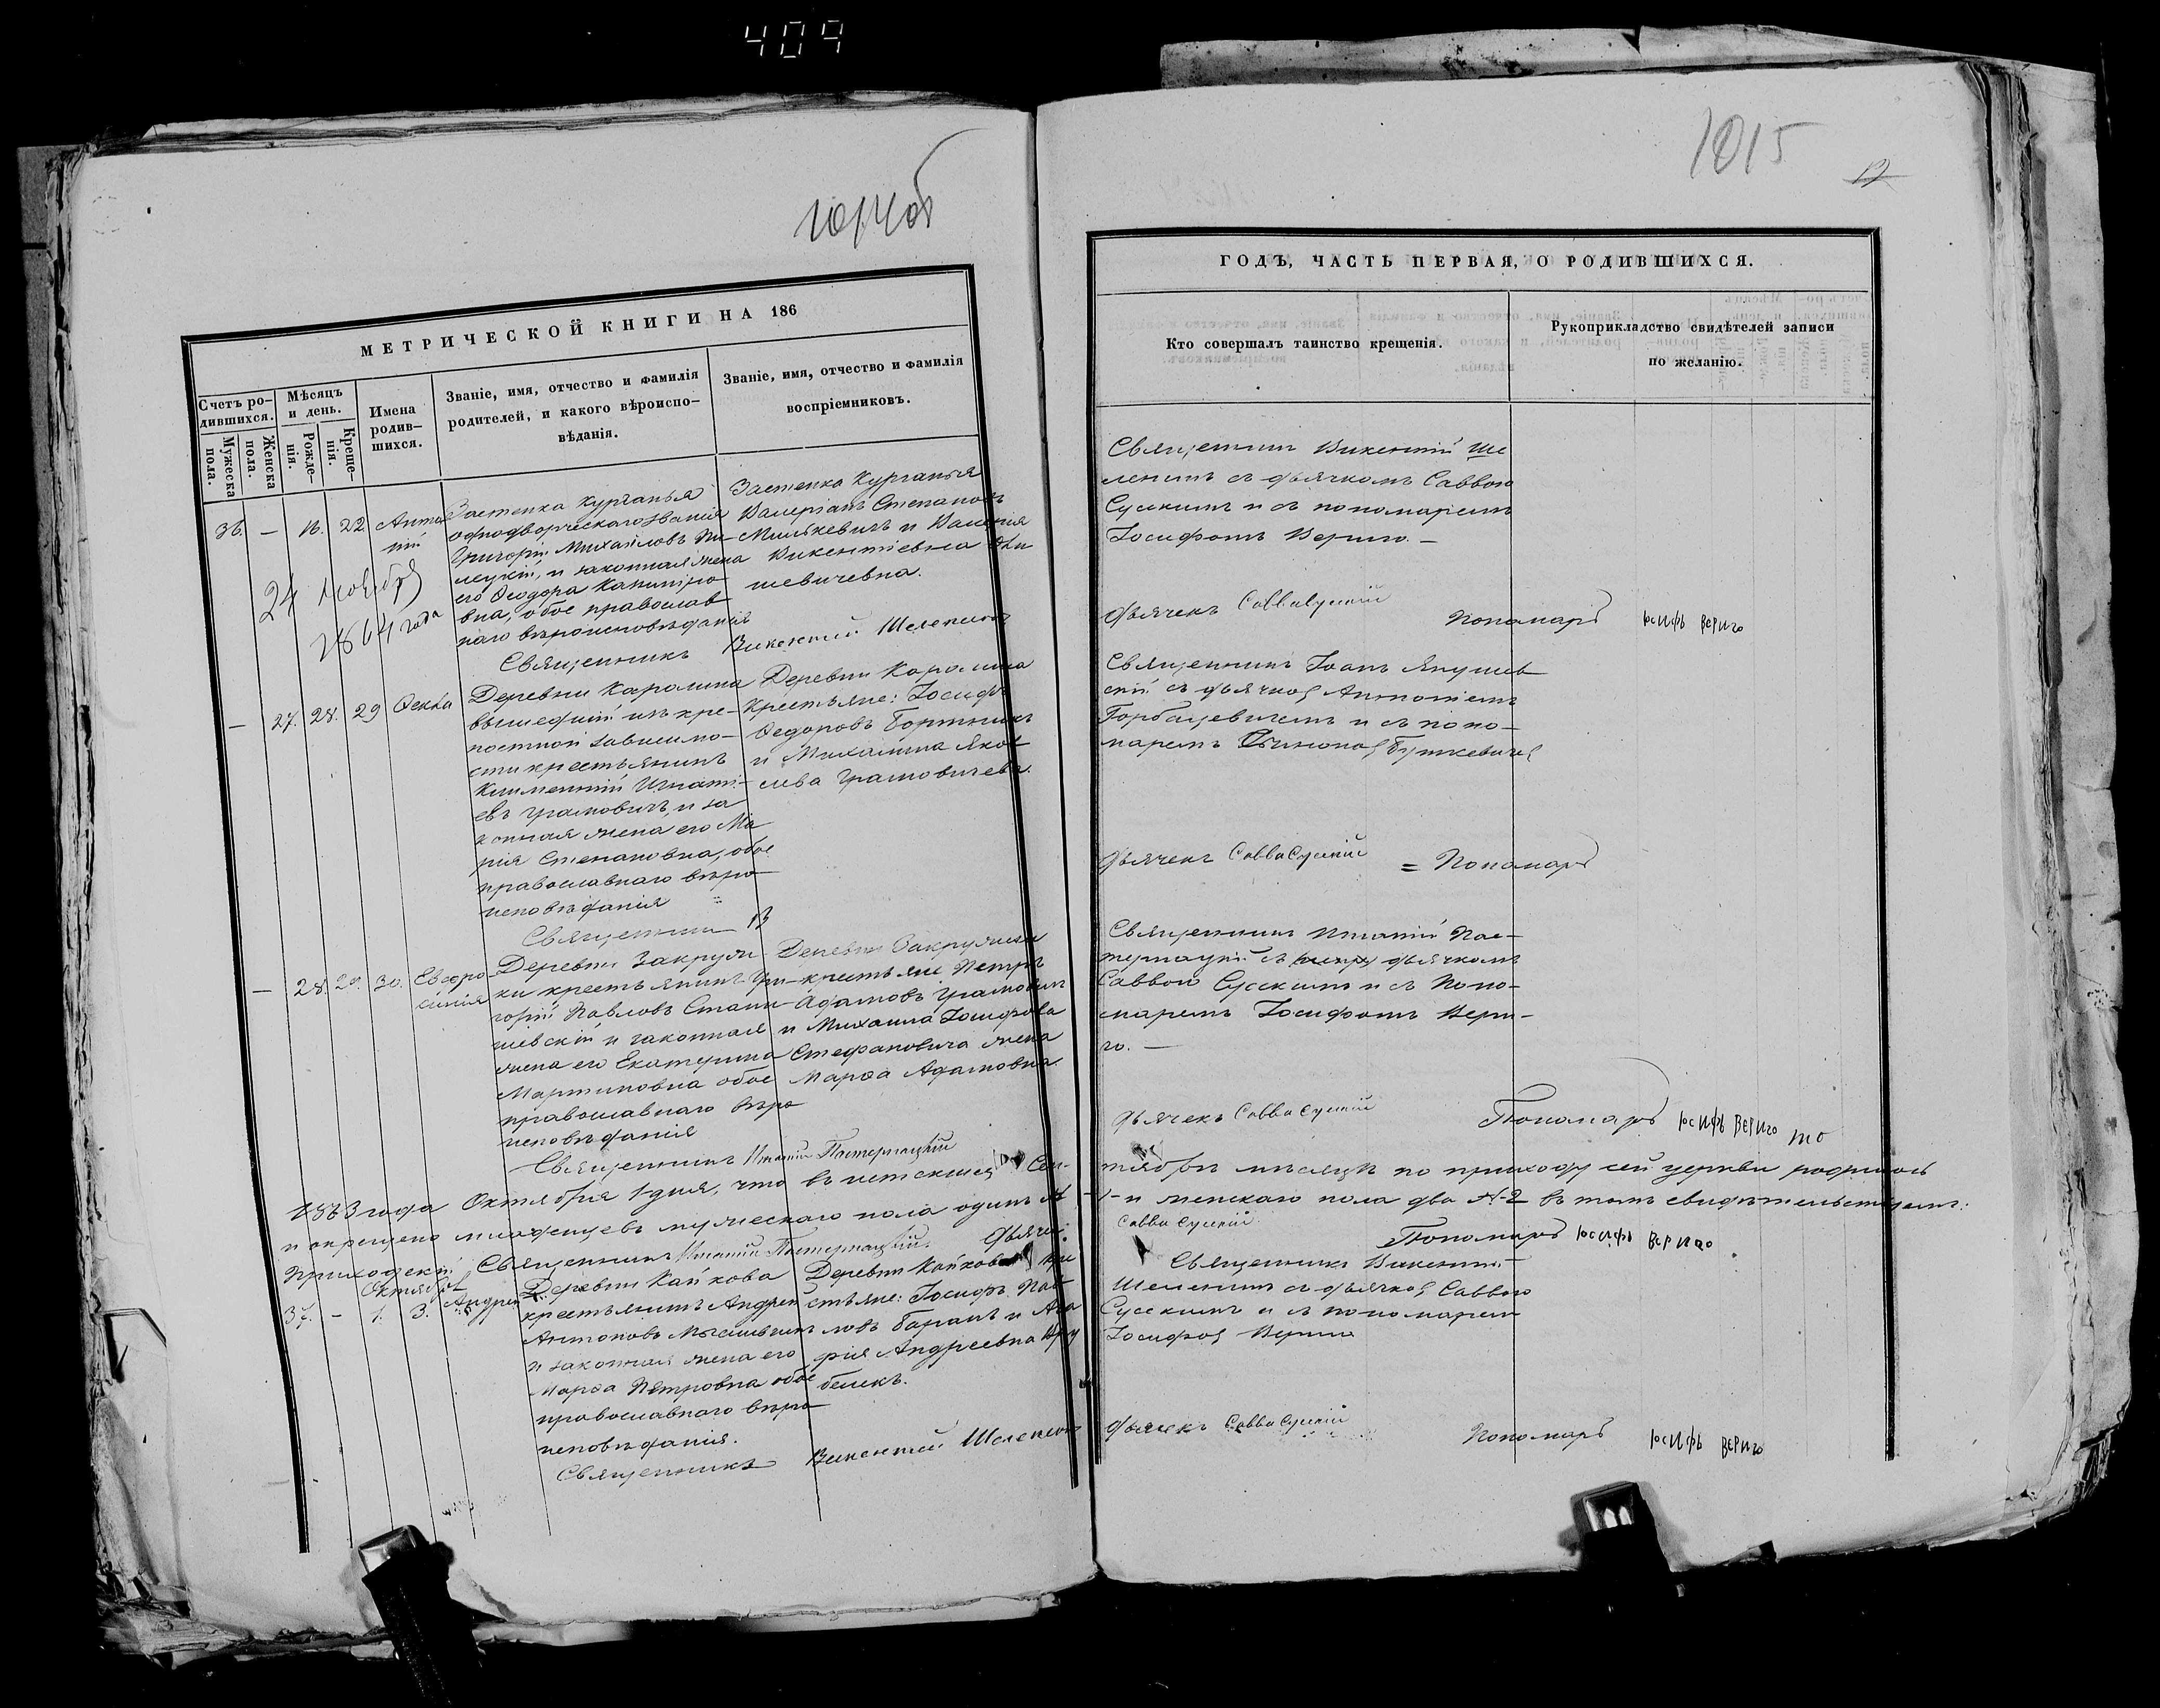 409
1014об
МЕТРИЧЕСКОЙ КНИГИ НА 186
Счетъ родившихся.
Мужеска пола.
Женска пола.
Мѣсяцъ и день.
Рожденія.
Крещенія.
Имена родив-
шихся.
Званіе, имя, отчество и фамилія
родителей, и какого вѣроиспо-
вѣданія.
Званіе, имя, отчество и фамилія
воспріемниковъ.
36. — 16. 22 Анто
ній
24 ноября
1864 года
Застенка Курганья
однодворческаго званія
Григорій Михаиловъ
и законная жена
его Ѳеодора
вна, обое православ
наго вѣроисповѣданія
Застенка Курганья
Валеріанъ Степановъ
Милькевичъ и Валерія
Викентіевна
шевичевна.
Священникъ Викентій Шелепинъ
— 27. 28. 29 Ѳекла
Деревни Каролина
вышедшій изъ кре-
постной зависимо-
сти крестьянинъ
Климентій Игнаті-
евъ Грамовичъ, и за
конная жена его Ма
рія Степановна, обое
православнаго вѣро
исповѣданія
Деревни Каролина
крестьяне: Іосифъ
Ѳедоровъ Бортникъ
и Михалина Яков
лева Грамовичева.
Священник В
— 28. 29. 30. Евфро
синія
Деревни Закруж
ки крестьянинъ Гри-
горій Павловъ Стани-
шевскій и законная
жена его Екатерина
Мартиновна обое
православнаго вѣро
исповѣданія
Деревни Закружки
крестьяне Петръ
Адамовъ Грамовичъ
и Михаила Іосифова
Стефановича жена
Марѳа Адамовна
Священникъ Игнатій Пастернацкій
1863 года Октября 1 дня, что въ истекшемъ Сен-
и окрещено младенцевъ мужескаго пола одинъ №
Приходскій Священникъ Игнатій Пастернацкій. Дьячек:
Октября
37. — 1. 3. Андрей
Деревни Кайкова
крестьянинъ Андрей
Антоновъ
и законная жена его
Марѳа Петровна обое
православнаго вѣро
исповѣданія.
Деревни Кайкова кре
стьяне: Іосифъ Пав
ловъ Баранъ и Ага
фія Андреевна Вру
белекъ.
Священникъ Викентій Шелепинъ
1015
ГОДЪ, ЧАСТЬ ПЕРВАЯ, О РОДИВШИХСЯ.
Кто совершалъ таинство крещенія.
Рукоприкладство свидѣтелей записи
по желанію.
Священникъ Викентій Ше
лепинъ съ дьячкомъ Саввою
Сускимъ и съ пономаремъ
Іосифомъ Вериго. —
Дьячекъ Савва Сускій Пономарь Юсифь вериго
Священникъ Іоанъ Янушев
скій съ дьячкомъ Антоніемъ
Горбацевичемъ и съ поно-
маремъ Буткевичемъ
Дьячекъ Савва Сускій = Пономарь
Священникъ Игнатій Пас-
тернацкій съ дьячкомъ
Саввою Сускимъ и съ Поно-
маремъ Іосифомъ Вери-
го. —
Дьячекъ Савва Сускій Пономарь Юсифь вериго
тябрѣ мѣсяцѣ по приходу сей церкви родилось
-1- и женскаго пола два №-2 въ томъ свидѣтельствуемъ:
Савва Сускій Пономарь Юсифь вериго
Священникъ Викентій
Шелепинъ съ дьячкомъ Саввою
Сускимъ и съ пономаремъ
Іосифомъ Вериго
Дьячекъ Савва Сускій Пономарь Юсифь вериго